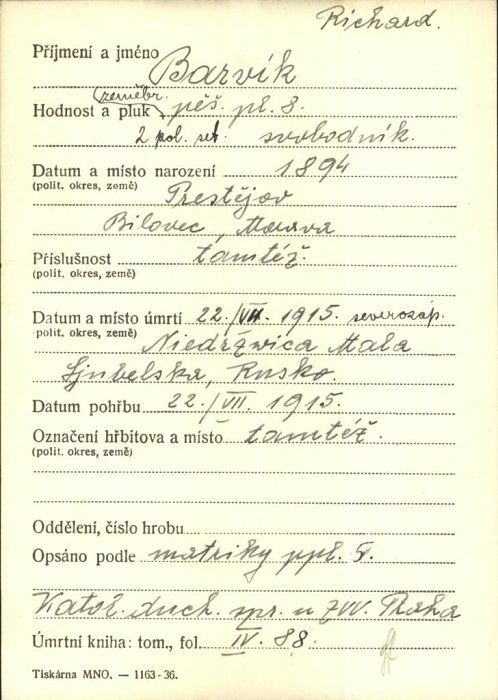 Richard.
Příjmení a jméno Barvík
(zeměbr.
Hodnost a pluk pěš. pl. 8.
2 pol. set. svobodník.
Datum a místo narození 1894
(polit. okres, země) Prestějov
Bilovec, Morava
Příslušnost tamtéž.
(polit. okres, země)
Datum a místo úmrtí 22./VII. 1915. severozáp.
polit. okres, země) Niedržwica Mala
Ljubelska, Rusko.
Datum pohřbu 22./VII. 1915.
Označení hřbitova a místo tamtéž.
(polit. okres, země)
Oddělení, číslo hrobu
Opsáno podle matriky ppl. 5.
Katol. duch. spr. u ZVV. Praha
Úmrtní kniha: tom., fol. IV. 88.
Tiskárna MNO. — 1163-36.